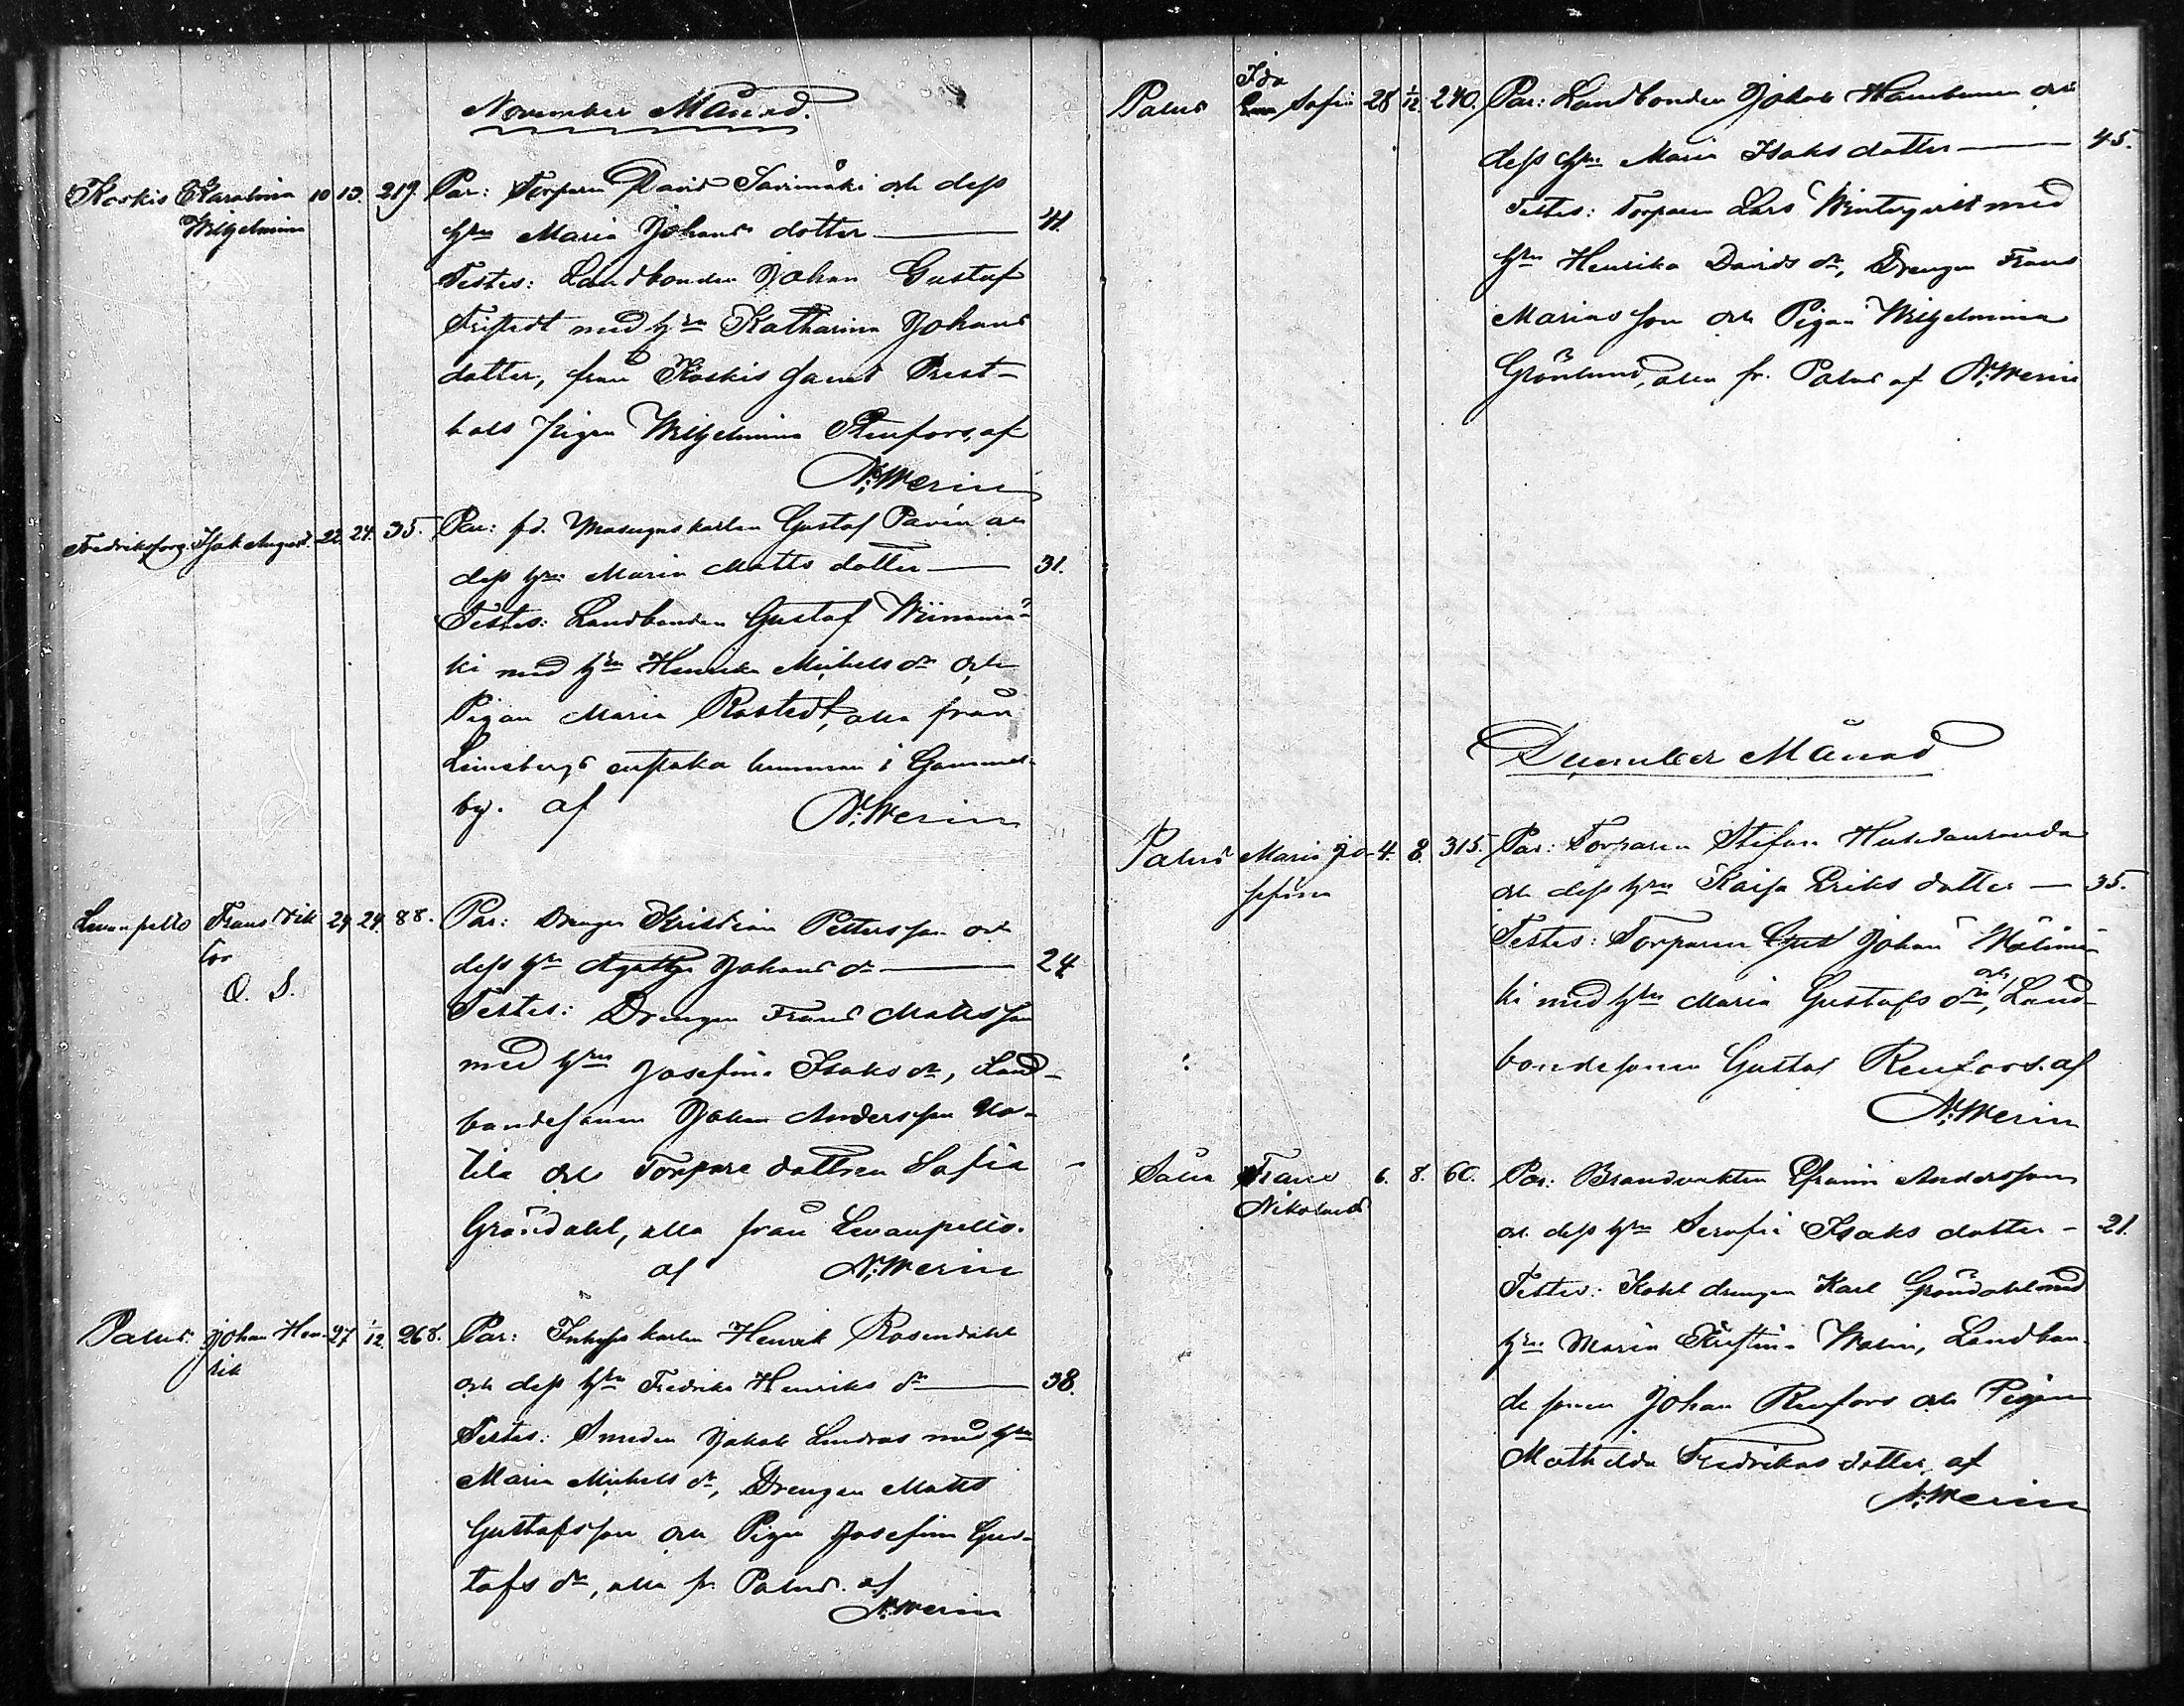 November Månad.
Koskis Karolina 10 13. 219. Par: Torparen David Savimäki och dess
Wilhelmina hru Maria Johans dotter — 41.
Testes: Landbonden Johan Gustaf
med hru Katharina Johans
dotter, från Koskis samt Prest-
hols pigan Wilhelmina Renfors, af
N: Werin
Fredriksforg. Isak August. 22. 24. 35. Par: fd. Masugnskarlen Gustaf Pavén och
dess hru Maria Matts dotter — 31.
Testes: Landbonden Gustaf Wiinamä-
ki med hru Henrika Michels dr och
Pigan Maria Rostedt, alla från
hemman i Gammel-
by. af N: Werin
Levanpelto Frans Vik 24 24. 88. Par: Drengen Kristian Pettersson och
tor dess hru Agatha Johans dr — 24
O. S.
Testes: Drengen Frans Matsson
med hru Josefina Isaks dr, Land-
bondesonen Johan Andersson Uo-
tila och Torpare dottren Sofia
Gröndahl, alla från Levanpelto.
af N: Werin
Palus. Johan Hen- 27 1/12. 268. Par: Inhyses karlen Henrik Rosendahl
rik och dess hru Fredrika Henriks dr — 38.
Testes: Smeden Jakob Lindroos med hru
Maria Michels dr, Drengen Matts
Gustafsson och Pigan Josefina Gus-
tafs dr, alla fr. Palus. af
N: Werin
Palus Ida Sofia 28 1/12. 240. Par: Landbonden Jakob och
dess hru Maria Isaks dotter — 45.
Testes: Torparen Lars Winterqvist med
hru Henrika Davids dr, Drengen Frans
Mariasson och Pigan Wilhelmina
Grönlund, alla fr. Palus af N: Werin
December Månad
Palus Maria Jo- 4. 8. 315. Par: Torparen Stefan Huhdanranda
sefina och dess hru Kaisa Eriks dotter — 35.
Testes: Torparen Johan Mälimä-
ki med hru Maria Gustafs dr, och Land-
bondesonen Gustaf Renfors. af
N: Werin
Salia Frans 6. 8. 60. Par: Brandvakten Efraim Andersson
Nikolaus och dess hru Serafia Isaks dotter – 21.
Testes: Kohl drengen Karl Gröndahl med
hru Maria Kristina Malin, Landbon-
de sonen Johan Renfors och Pigan
Mathilda Fredrikas dotter, af
N: Werin